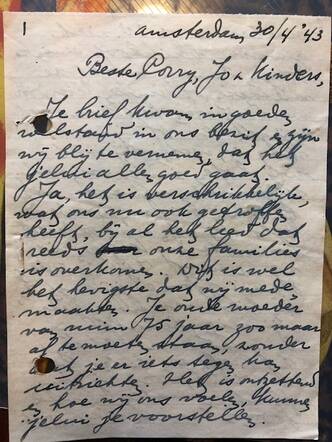 1
Amsterdam, 30/4 '43
Beste Corry, Jo & Kinders,
Je brief kwam in goede
welstand in ons bezit & zijn
wij blij te vernemen, dat het
jelui allen goed gaat.
Ja, het is verschrikkelijk,
wat ons nu ook getroffen
heeft, bij al het leed dat
reeds onze families
is overkomen. Dit is wel
het hevigste dat wij mede
maakten. Je oude moeder
van ruim 75 jaar zoo maar
af te moeten staan, zonder
dat je er iets tegen kan
uitrichten. Het is ontzettend
& hoe wij ons voelen, kunnen
jelui je voorstellen.